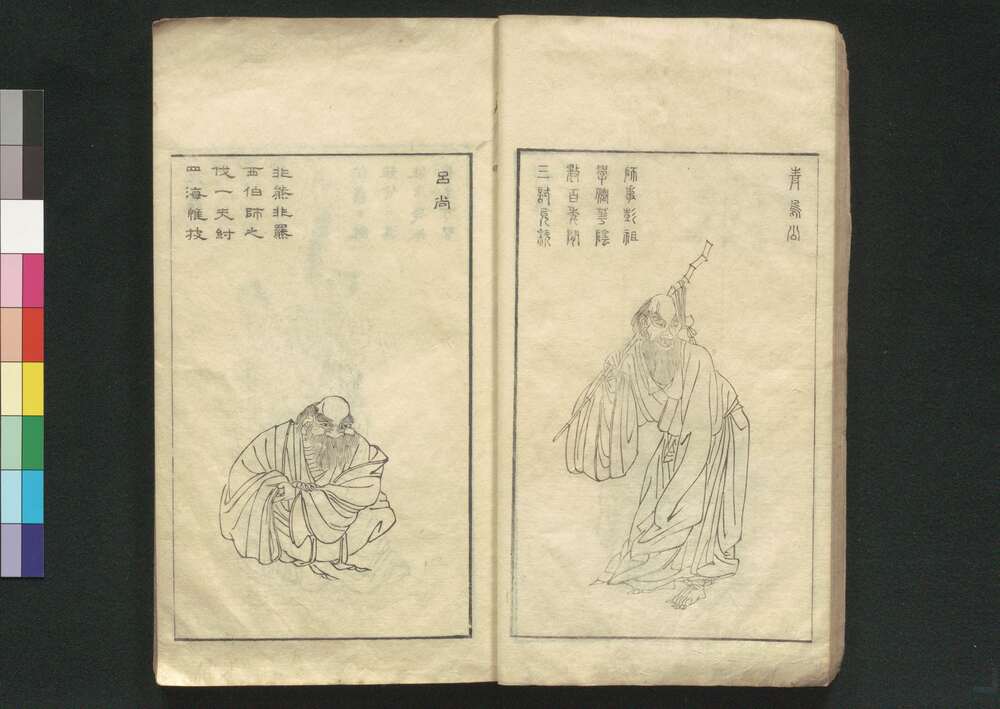 青烏公
師事彭祖
學僊華陰
數百年
三試
呂尚
非熊非羆
西伯師之
伐一夫紂
四海惟